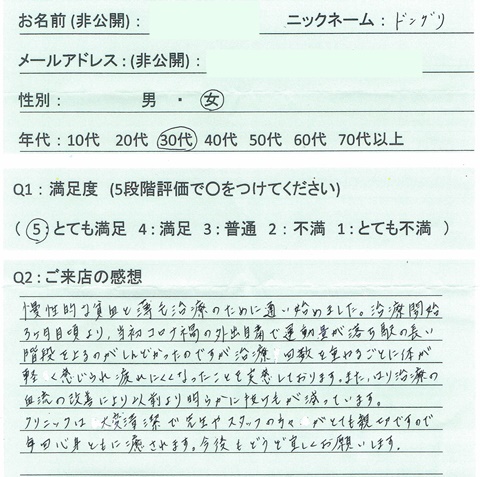 お名前(非公開)： ニックネーム：ドングリ
メールアドレス：(非公開)：
性別： 男 ・ 女
年代：10代 20代 30代 40代 50代 60代 70代以上
Q1：満足度 (5段階評価で〇をつけてください)
( 5：とても満足 4：満足 3：普通 2：不満 1：とても不満 )
Q2：ご来店の感想
慢性的な貧血と薄毛治療のために通い始めました。治療開始
3ヶ月目頃より、当初コロナ禍の外出自粛で運動量が落ち駅の長い
階段を上るのがしんどかったのですが治療回数を重ねるごとに体が
軽く感じられ疲れにくくなったことを実感しております。また、はり治療の
血流の改善により以前より明らかに抜け毛が減っています。
クリニックは大変清潔で先生やスタッフの方々がとても親切ですので
毎回心身ともに癒されます。今後もどうぞ宜しくお願いします。